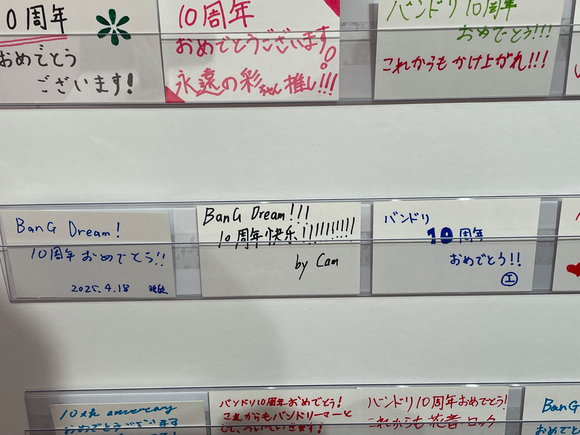 10周年
おめでとう
ございます!
10周年
おめでとうございます!!
永遠の彩ちゃん推し!!!
バンドリ10周年
おめでとう!!!
これからもかけ上がれ!!!
BanG Dream!
10周年おめでとう!!
2025.4.18
BanG Dream!!!
10周年快乐!!!!!!!!!!
by Cam
バンドリ
10周年
おめでとう!!
工
10th anversary
おめでとうございます
バンドリ10周年おめでとう!
これからもバンドリーマーと
して、ついていきます!
バンドリ10周年おめでとう!
これからも花音ロック
BanG
おめ